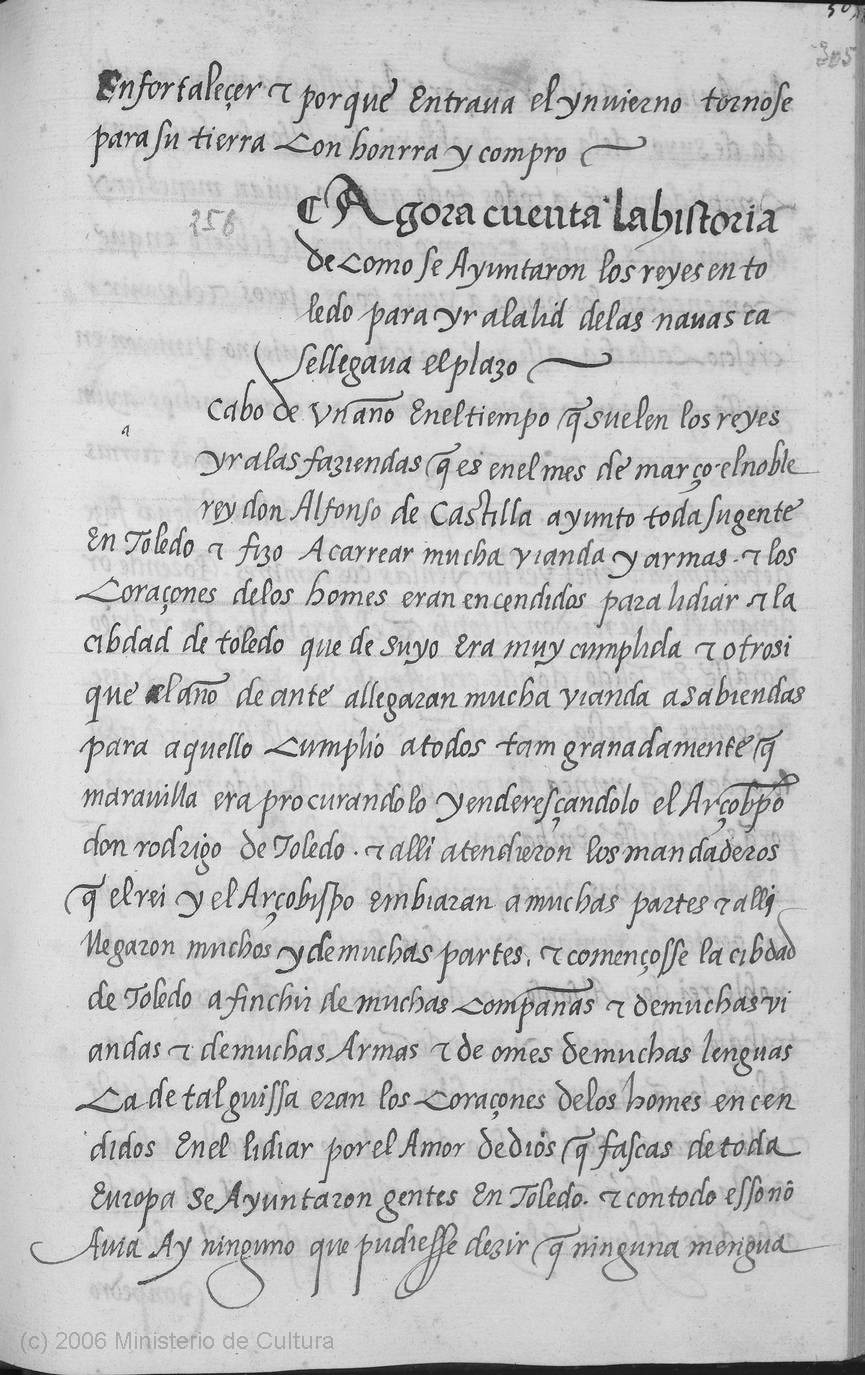 305
Enfortaleçer ⁊ porque Entraua el ynuierno tornose
para su tierra Con honrra y compro
256
Agora cuenta la historia
de Como se Ayuntaron los reyes en to
ledo para yr ala lid delas nauas ca
se llegaua el plazo
a
Cabo de vn año Enel tiempo q̃ suelen los reyes
yr alas faziendas q̃ es enel mes de março el noble
rey don Alfonso de Castilla ayunto toda su gente
En Toledo ⁊ fizo Acarrear mucha vianda y armas. ⁊ los
Coraçones delos homes eran encendidos para lidiar ⁊ la
cibdad de toledo que de suyo Era muy cumplida ⁊ otrosi
que el año de ante allegaran mucha vianda asabiendas
para aquello Cumplio atodos tam granadamente q̃
marauilla era procurandolo y enderesçandolo el Arçobp̃o
don rodrigo de Toledo. ⁊ alli atendieron los mandaderos
q̃ el rei y el Arçobispo Embiaran amuchas partes ⁊ alli
llegaron muchos y de muchas partes. ⁊ començosse la cibdad
de Toledo afinchir de muchas Compañas ⁊ demuchas vi
andas ⁊ demuchas Armas ⁊ de omes demuchas lenguas
Ca de tal guissa eran los Coraçones delos homes encen
didos Enel lidiar por el Amor de dios q̃ fascas de toda
Europa se Ayuntaron gentes En Toledo. ⁊ con todo esso nõ
Auia Ay ninguno que pudiesse dezir q̃ ninguna mengua
(c) 2006 Ministerio de Cultura